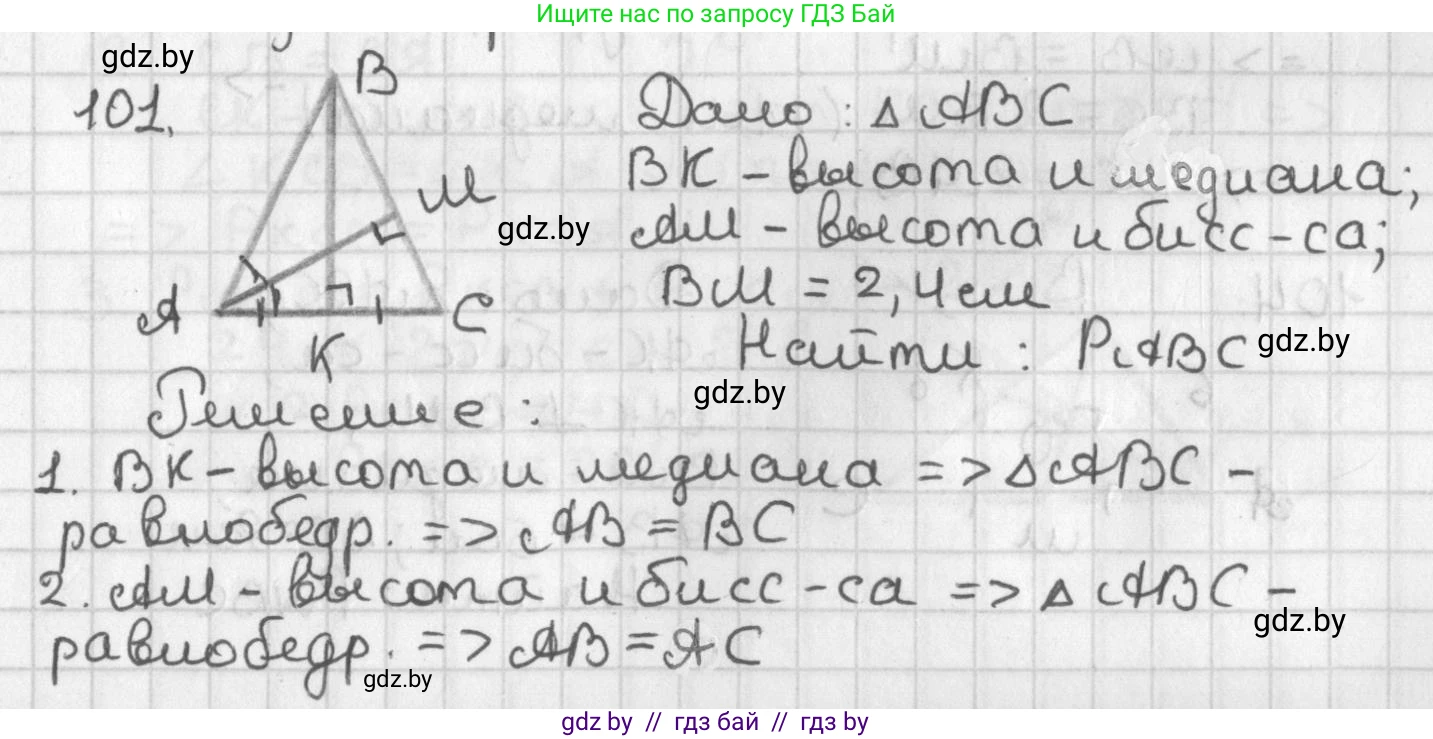 Ищите нас по запросу ГДЗ Бай
gdz.by
101.
B
M
A
K
C
Дано: △ABC
BK - высота и медиана;
gdz.by
AM - высота и бисс-са;
BM = 2,4см
Найти: PABC
gdz.by
gdz.by
Решение:
1. BK - высота и медиана => △ABC -
равнобедр. => AB = BC
2. AM - высота и бисс-са => △ABC -
gdz.by
равнобедр. => AB = AC
gdz.by
gdz by // гдз бай // гдз by